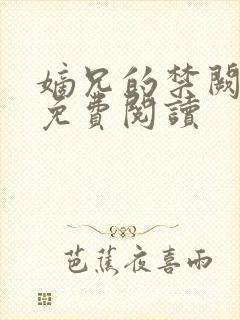 嫡兄的禁闕
免費閱讀
芭蕉夜喜雨